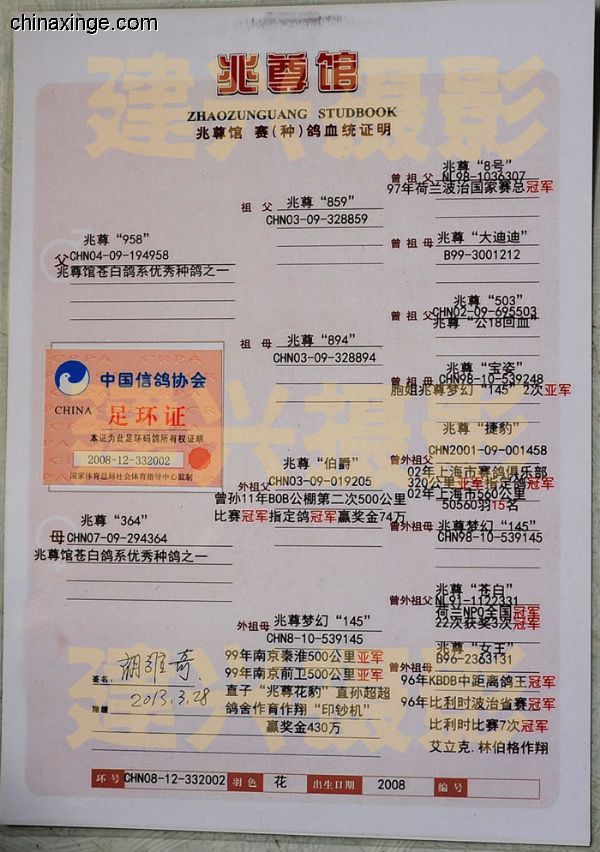 chinaxinge.com
兆尊馆
ZHAOZUNGUANG STUDBOOK
兆尊馆 赛(种)鸽血统证明
建兴摄影
父
兆尊“958”
CHN04-09-194958
兆尊馆苍白鸽系优秀种鸽之一
祖父
兆尊“859”
CHN03-09-328859
曾祖父
兆尊“8号”
NL98-1036307
97年荷兰波治国家赛总冠军
曾祖母
兆尊“大迪迪”
B99-3001212
祖母
兆尊“894”
CHN03-09-328894
曾祖父
兆尊“503”
CHN02-09-695503
兆尊“公18回血”
曾祖母
兆尊“宝姿”
CHN98-10-539248
胞姐兆尊梦幻“145”2次亚军
CRPA CRPA CRPA
中国信鸽协会
CHINA 足环证
本证为此足环码鸽所有权证明
2008-12-332002
国家体育总局社会体育指导中心监制
建兴摄影
母
兆尊“364”
CHN07-09-294364
兆尊馆苍白鸽系优秀种鸽之一
外祖父
兆尊“伯爵”
CHN03-09-019205
曾孙11年BOB公棚第二次500公里
比赛冠军指定鸽冠军赢奖金74万
曾外祖父
兆尊“捷豹”
CHN2001-09-001458
02年上海市赛鸽俱乐部
320公里亚军指定鸽冠军
02年上海市560公里
50560羽15名
曾外祖母
兆尊梦幻“145”
CHN98-10-539145
外祖母
兆尊梦幻“145”
CHN8-10-539145
99年南京秦淮500公里亚军
99年南京前卫500公里亚军
直子“兆尊花豹”直孙超超
鸽舍作育作翔“印钞机”
赢奖金430万
曾外祖父
兆尊“苍白”
NL91-1122331
荷兰NPO全国冠军
22次获奖3次冠军
曾外祖母
兆尊“女王”
B96-2363131
96年KBDB中距离鸽王冠军
96年比利时波治省赛冠军
比利时比赛7次冠军
艾立克.林伯格作翔
建兴摄影
签名: 胡雅奇
2013.3.28
环号 CHN08-12-332002 羽色 花 出生日期 2008 编号